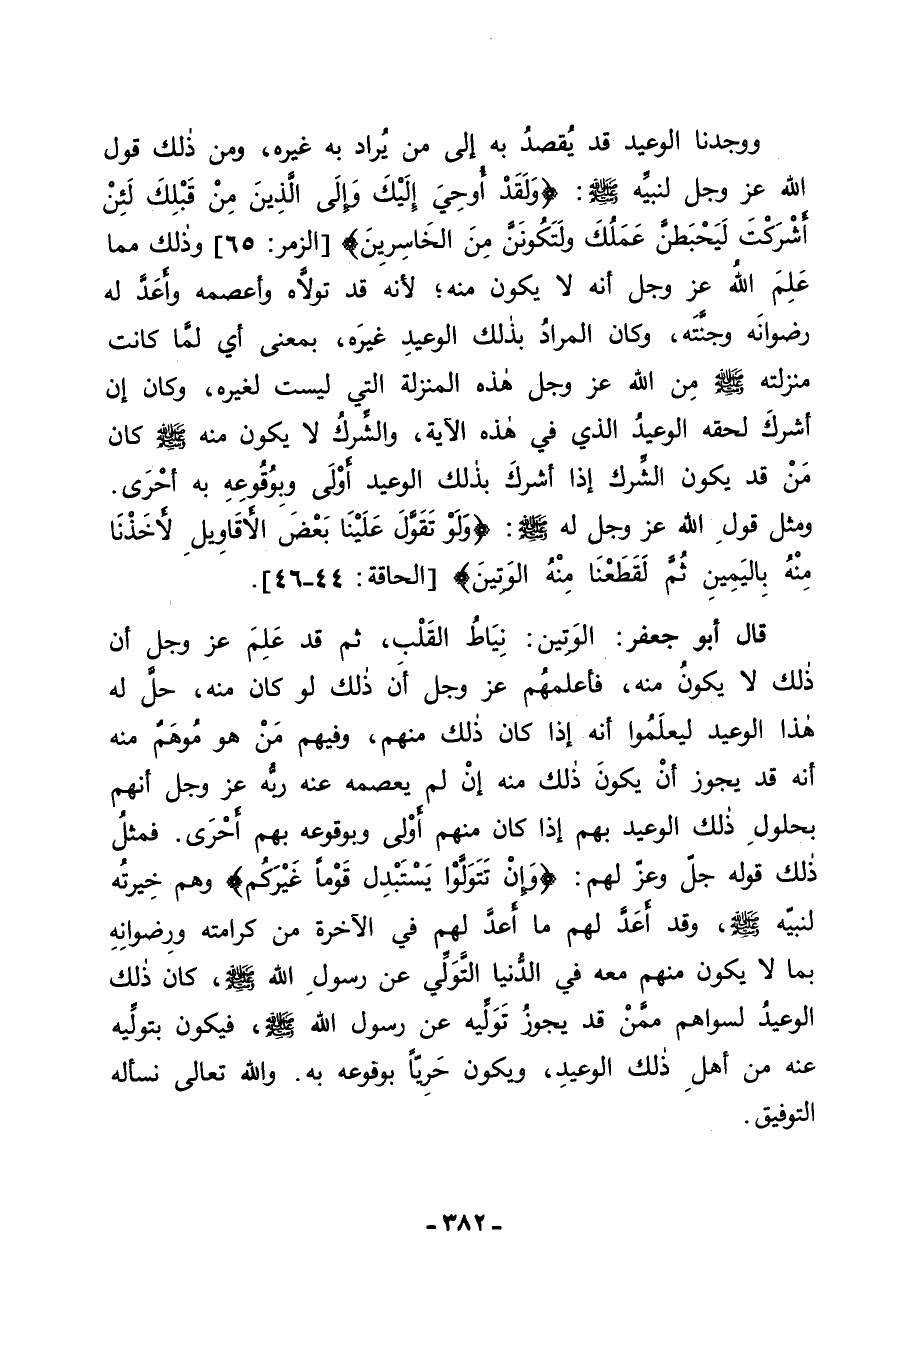 ووجدنا الوعيد قد يُقصدُ به إلى من يُراد به غيره، ومن ذٰلك قول
الله عز وجل لنبيِّه ﷺ: ﴿وَلَقَدْ أُوحِيَ إِلَيْكَ وَإِلَى الَّذِينَ مِنْ قَبْلِكَ لَئِنْ
أَشْرَكْتَ لَيَحْبَطنَّ عَمَلُكَ ولَتَكُونَنَّ مِنَ الخَاسِرِينَ﴾ [الزمر: ٦٥] وذٰلك مما
عَلِمَ اللهُ عز وجل أنه لا يكون منه؛ لأنه قد تولَّاه وأعصمه وأَعَدَّ له
رضوانَه وجنَّتَه، وكان المرادُ بذٰلك الوعيدِ غيرَه، بمعنى أي لمَّا كانت
منزلته ﷺ مِن الله عز وجل هٰذه المنزلة التي ليست لغيره، وكان إن
أشركَ لحقه الوعيدُ الذي في هٰذه الآية، والشِّركُ لا يكون منه ﷺ كان
مَنْ قد يكون الشِّرك إذا أشركَ بذٰلك الوعيد أَوْلَى وبِوُقُوعِهِ به أحْرَى.
ومثل قولِ الله عز وجل له ﷺ: ﴿وَلَوْ تَقَوَّلَ عَلَيْنَا بَعْضَ الأَقَاويلِ لأَخَذْنَا
مِنْهُ بِاليَمِينِ ثُمَّ لَقَطَعْنَا مِنْهُ الوَتِينَ﴾ [الحاقة: ٤٤-٤٦].
قال أبو جعفر: الوَتِين: نِيَاطُ القَلْبِ، ثم قد عَلِمَ عز وجل أن
ذٰلك لا يكونُ منه، فأعلمهُم عز وجل أن ذٰلك لو كان منه، حلَّ له
هٰذا الوعيد ليعلَمُوا أنه إذا كان ذٰلك منهم، وفيهم مَنْ هو مُوهَمٌ منه
أنه قد يجوز أنْ يكونَ ذٰلك منه إنْ لم يعصمه عنه ربُّه عز وجل أنهم
بحلولِ ذٰلك الوعيد بهم إذا كان منهم أَوْلى وبوقوعه بهم أَحْرَى. فمثلُ
ذٰلك قوله جلّ وعزّ لهم: ﴿وَإِنْ تَتَوَلَّوْا يَسْتَبْدِل قَوْماً غَيْرَكُم﴾ وهم خِيرتُه
لنبيّه ﷺ، وقد أَعَدَّ لهم ما أعدَّ لهم في الآخرة من كرامته ورِضوانِهِ
بما لا يكون منهم معه في الدُّنيا التَّوَلِّي عن رسولِ الله ﷺ، كان ذٰلك
الوعيدُ لسواهم ممَّنْ قد يجوزُ تَوَلِّيه عن رسول الله ﷺ، فيكون بتولِّيه
عنه من أهلِ ذٰلك الوعيدِ، ويكون حَرِيّاً بوقوعه به. والله تعالى نسأله
التوفيق.
- ٣٨٢ -